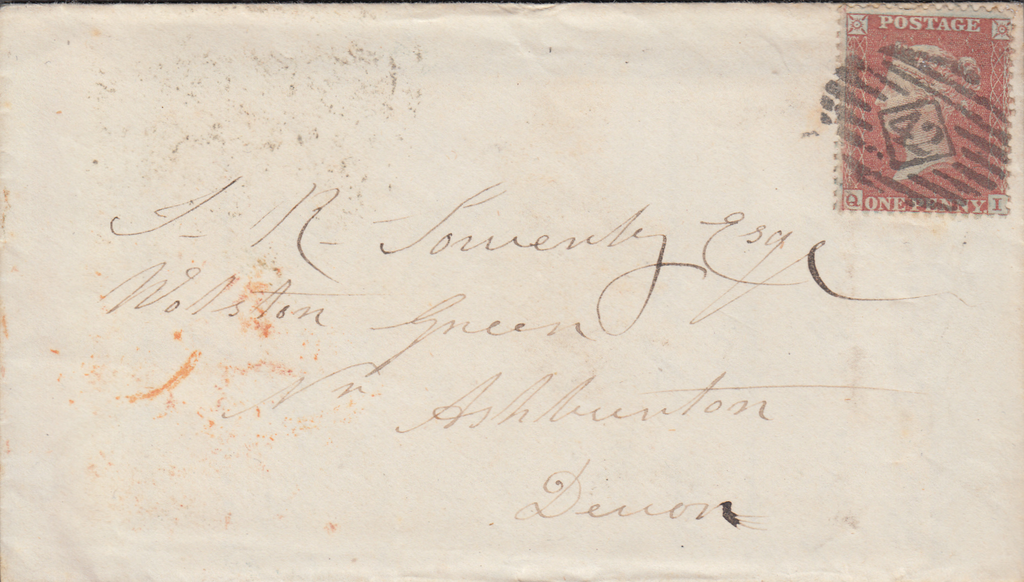 POSTAGE
42
Q ONE PENNY I
J- R- Sowerby Esq
Wolston Green
Nr Ashburton
Devon